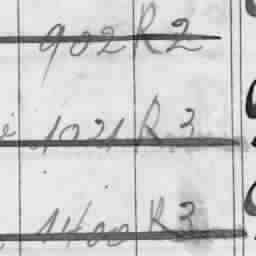 902 R 2
1021 R 3
1400 R 3